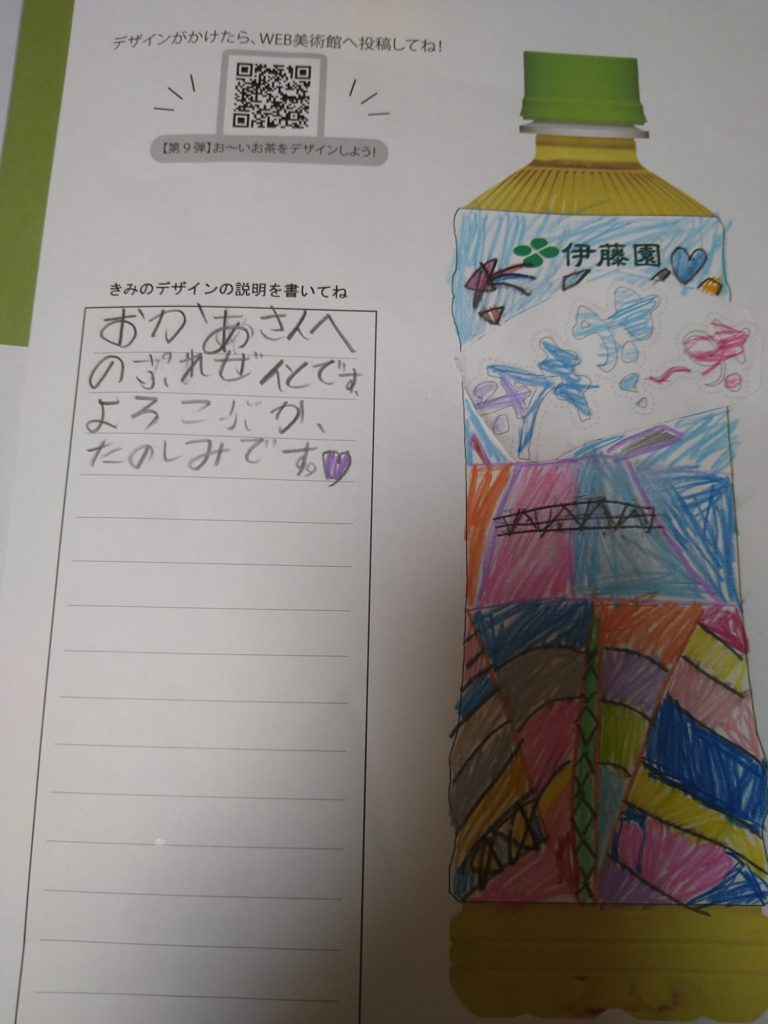 デザインがかけたら、WEB美術館へ投稿してね!
【第9弾】お〜いお茶をデザインしよう!
伊藤園
お〜いお茶
きみのデザインの説明を書いてね
おかあさんへ
のぷれぜんとです。
よろこぶか、
たのしみです。